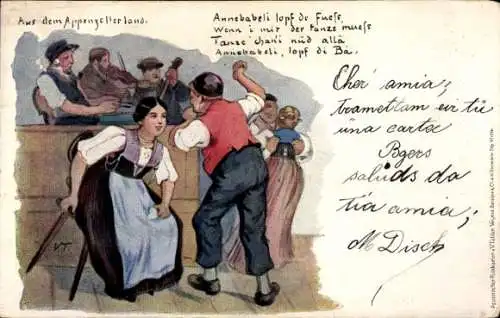 Aus dem Appenzellerland.
Annebäbeli lopf dr Fuess,
Wenn i mit der tanze muess
Tanze chan i nüd allä
Annebäbeli, lopf di Bä.
Cher' amia,
trametlam eir tü
üna carta
Bgers
salüds da
tia amia;
M Disch
VT